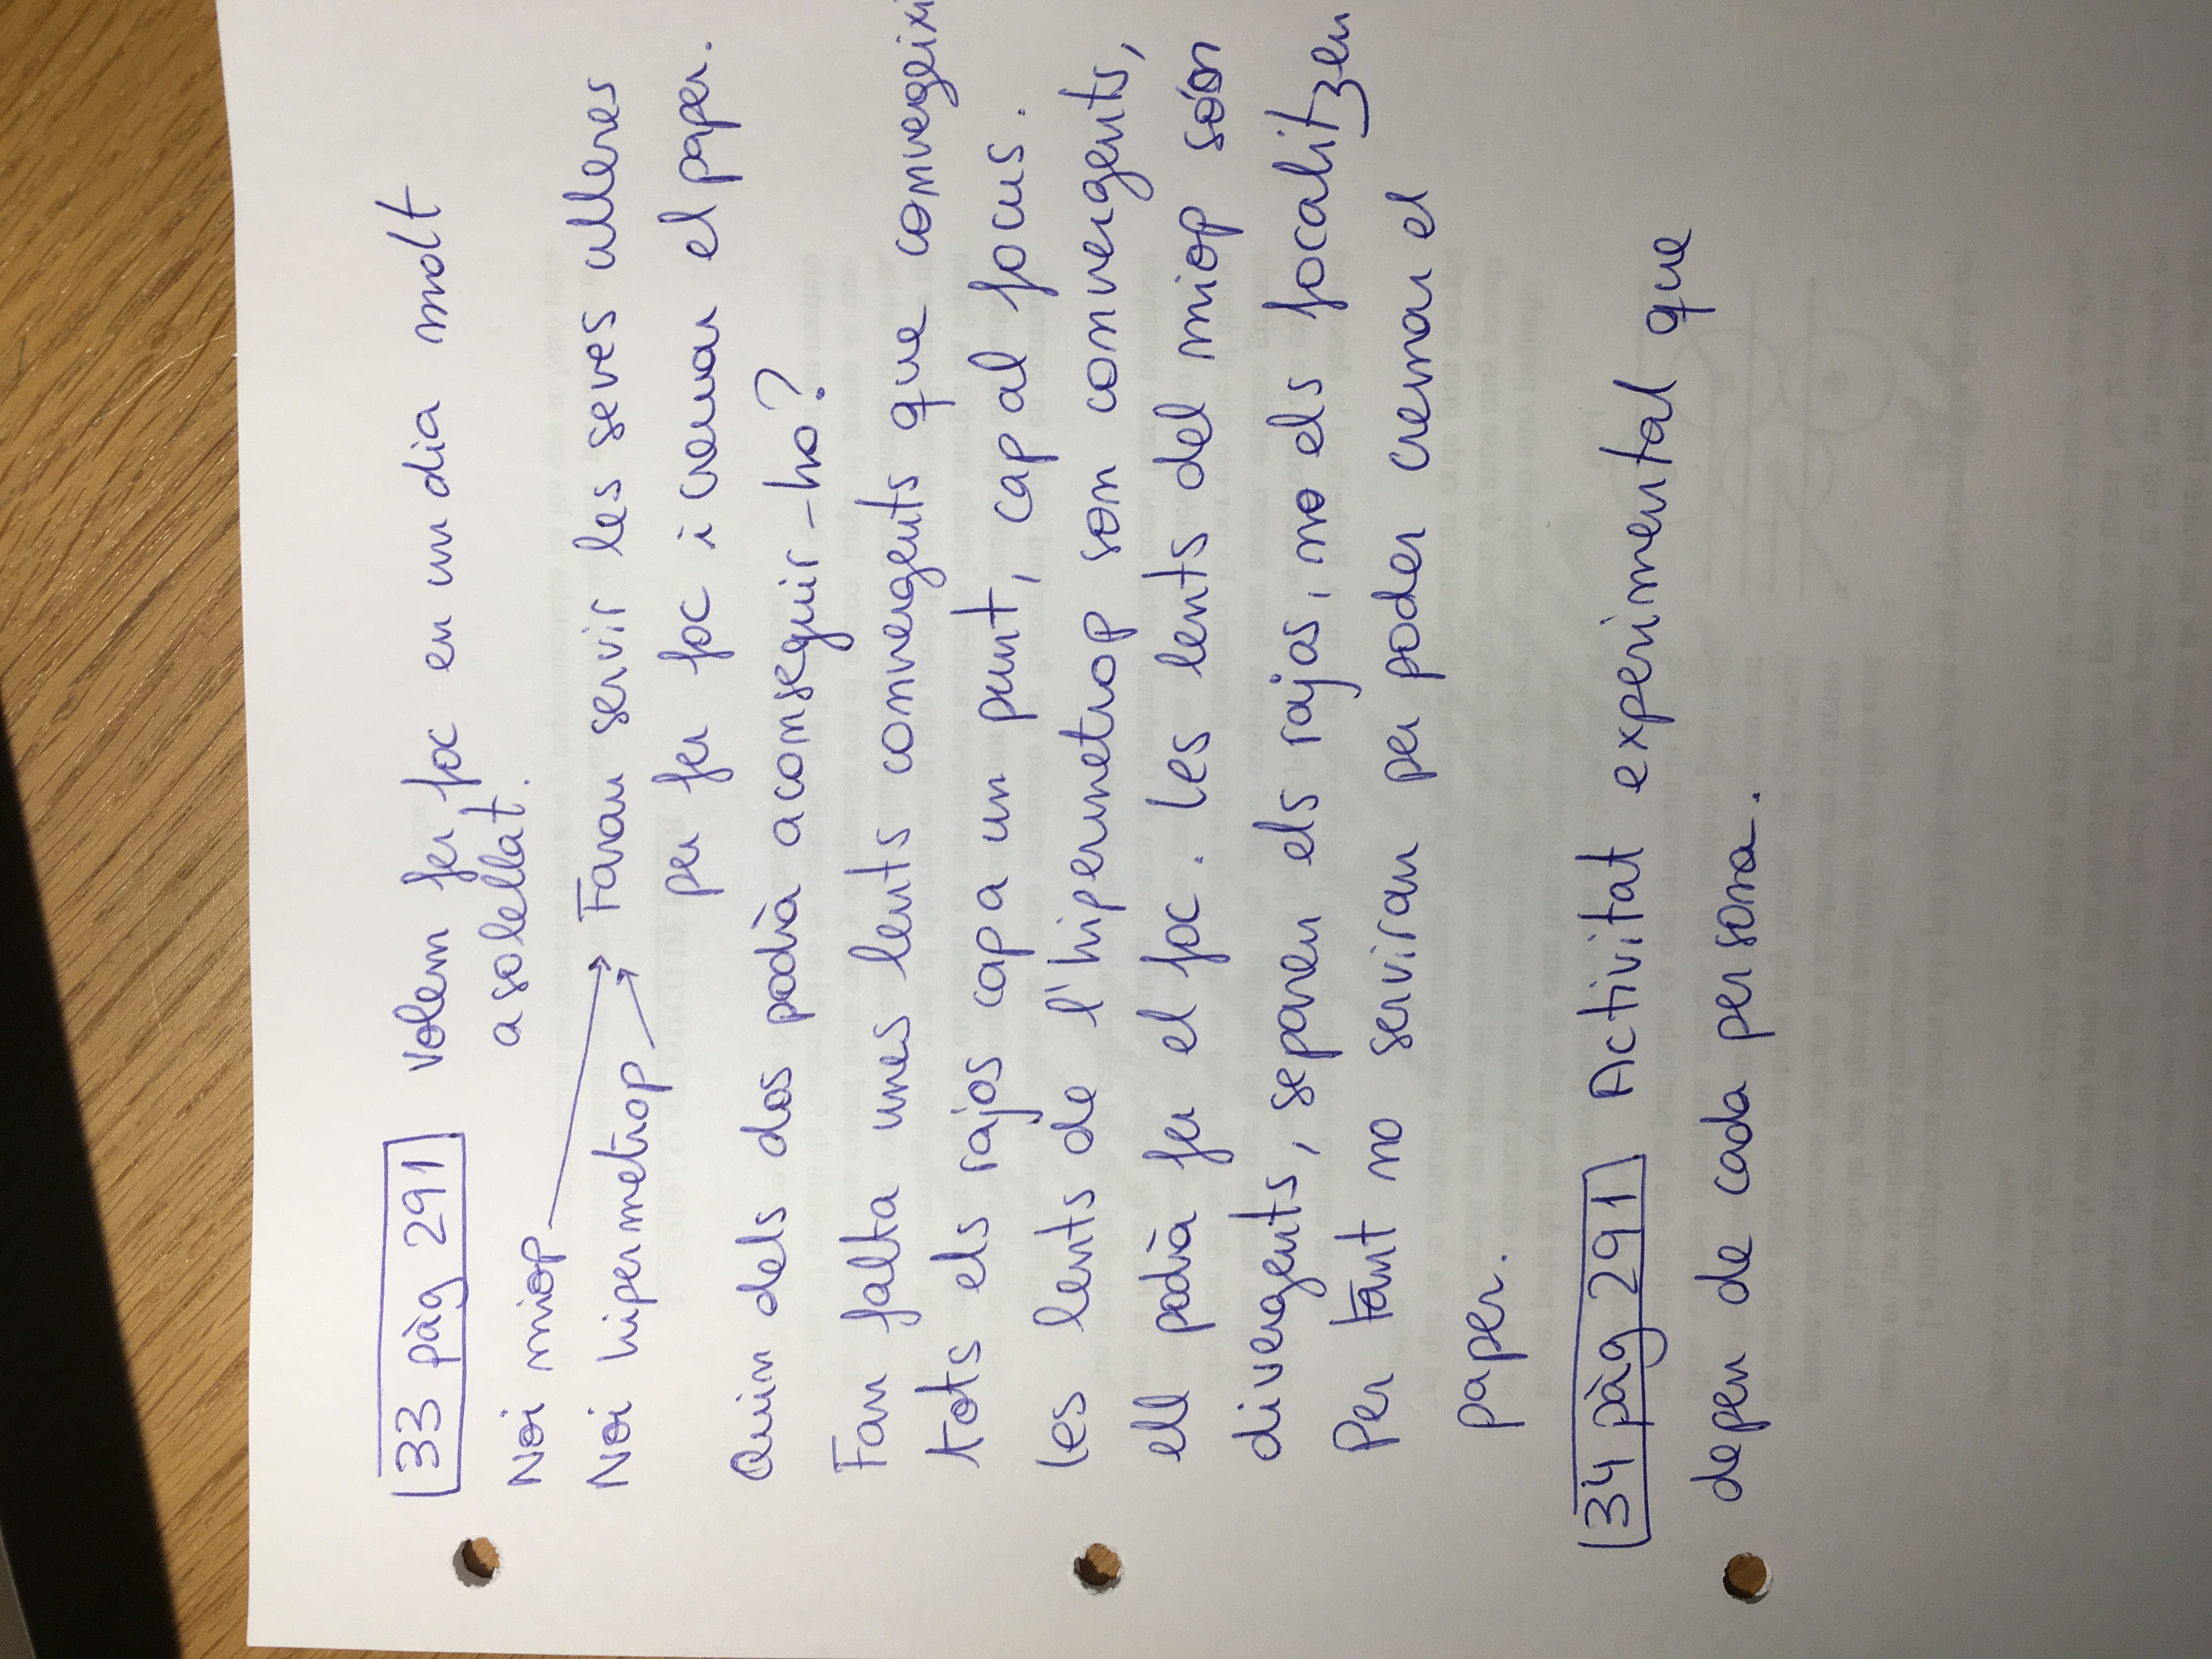 33 pàg 291 Volem fer foc en un dia molt
assolellat.
Noi miop
Noi hipermetrop
Faran servir les seves ulleres
per fer foc i cremar el paper.
Quin dels dos podrà aconseguir-ho?
Fan falta unes lents convergents que
tots els rajos cap a un punt, cap al focus.
Les lents de l'hipermetrop son convergents,
ell podrà fer el foc. Les lents del miop són
divergents, separen els rajos, no els focalitzen
Per tant no serviran per poder cremar el
paper.
34 pàg 291 Activitat experimental que
depen de cada persona.